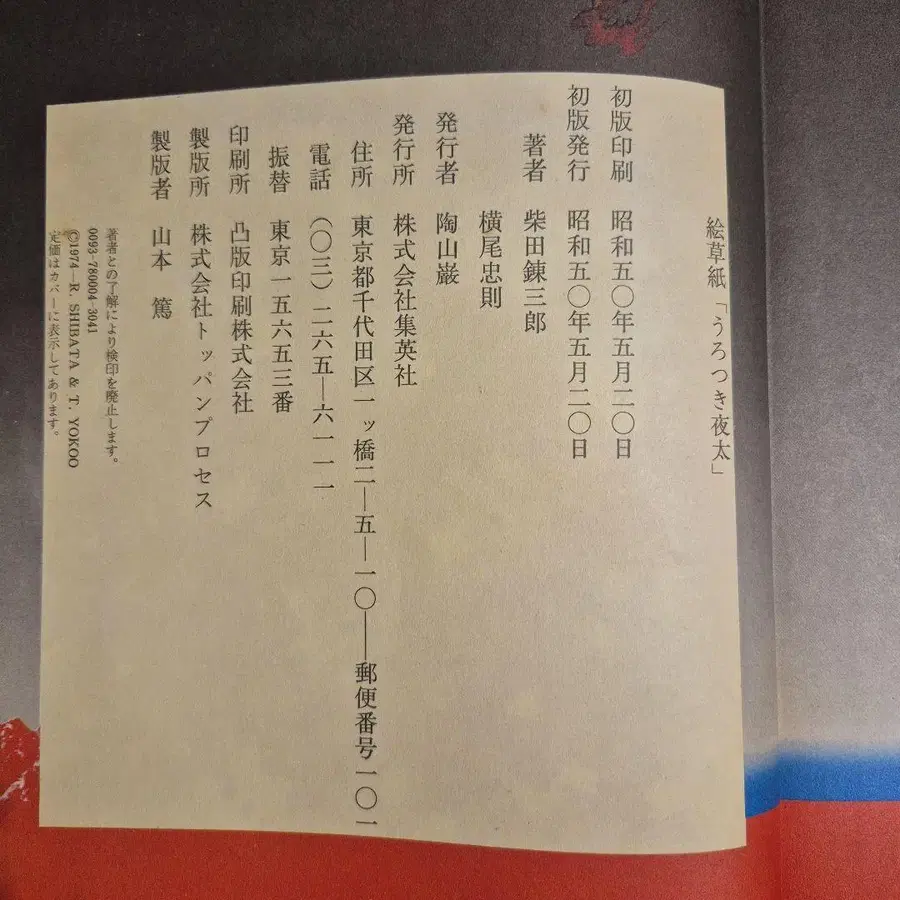 絵草紙「うろつき夜太」
初版印刷 昭和五〇年五月二〇日
初版発行 昭和五〇年五月二〇日
著者 柴田錬三郎
横尾忠則
発行者 陶山巌
発行所 株式会社集英社
住所 東京都千代田区一ッ橋二―五―一〇――郵便番号一〇一
電話 (〇三)二六五―六一一一
振替 東京一五六五三番
印刷所 凸版印刷株式会社
製版所 株式会社トッパンプロセス
製版者 山本 篤
著者との了解により検印を廃止します。
0093-780004-3041
©1974—R. SHIBATA & T. YOKOO
定価はカバーに表示してあります。